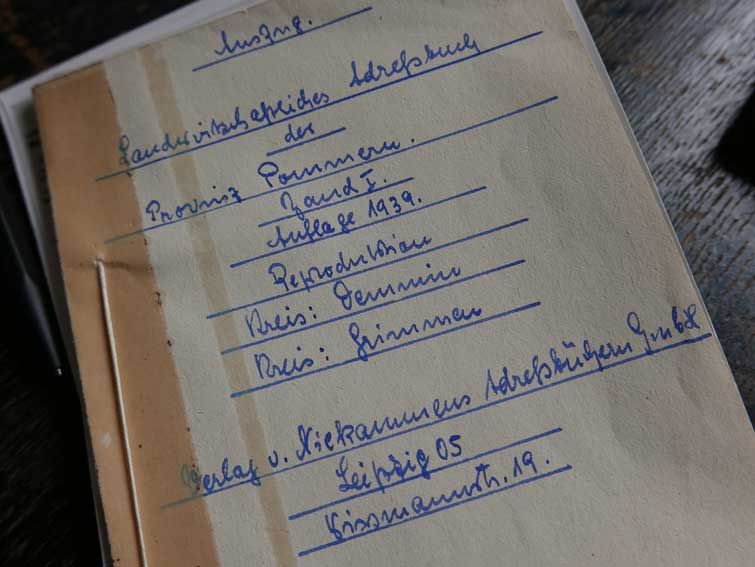 Auszug.
Landwirtschaftliches Adreßbuch
der
Provinz Pommern.
Band I.
Auflage 1939.
Reproduktion
Kreis: Demmin
Kreis: Grimmen
Verlag v. Niekammers Adreßbüchern GmbH
Leipzig 05
Wissmannstr. 19.